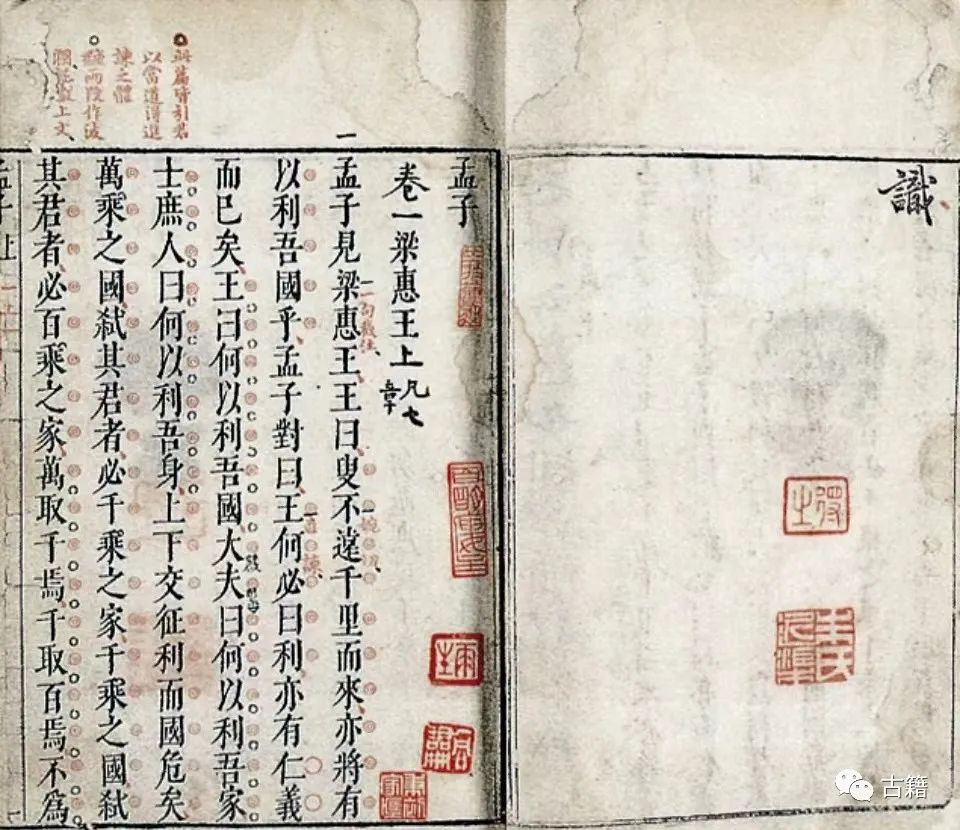 識
孟子
卷一梁惠王上凡七章
一
孟子見梁惠王王曰叟不遠千里而來亦將有
以利吾國乎孟子對曰王何必曰利亦有仁義
而已矣王曰何以利吾國大夫曰何以利吾家
士庶人曰何以利吾身上下交征利而國危矣
萬乘之國弒其君者必千乘之家千乘之國弒
其君者必百乘之家萬取千焉千取百焉不為
孟子上
皆引君
以當道得進
諫之體
兩段作波
上文
古籍